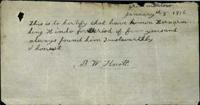 January 8th, 1916
This is to certify that have known Hernam
Sing Hindo for period of four years and
always found him Trustworthy
& honest.
D. W. Howitt